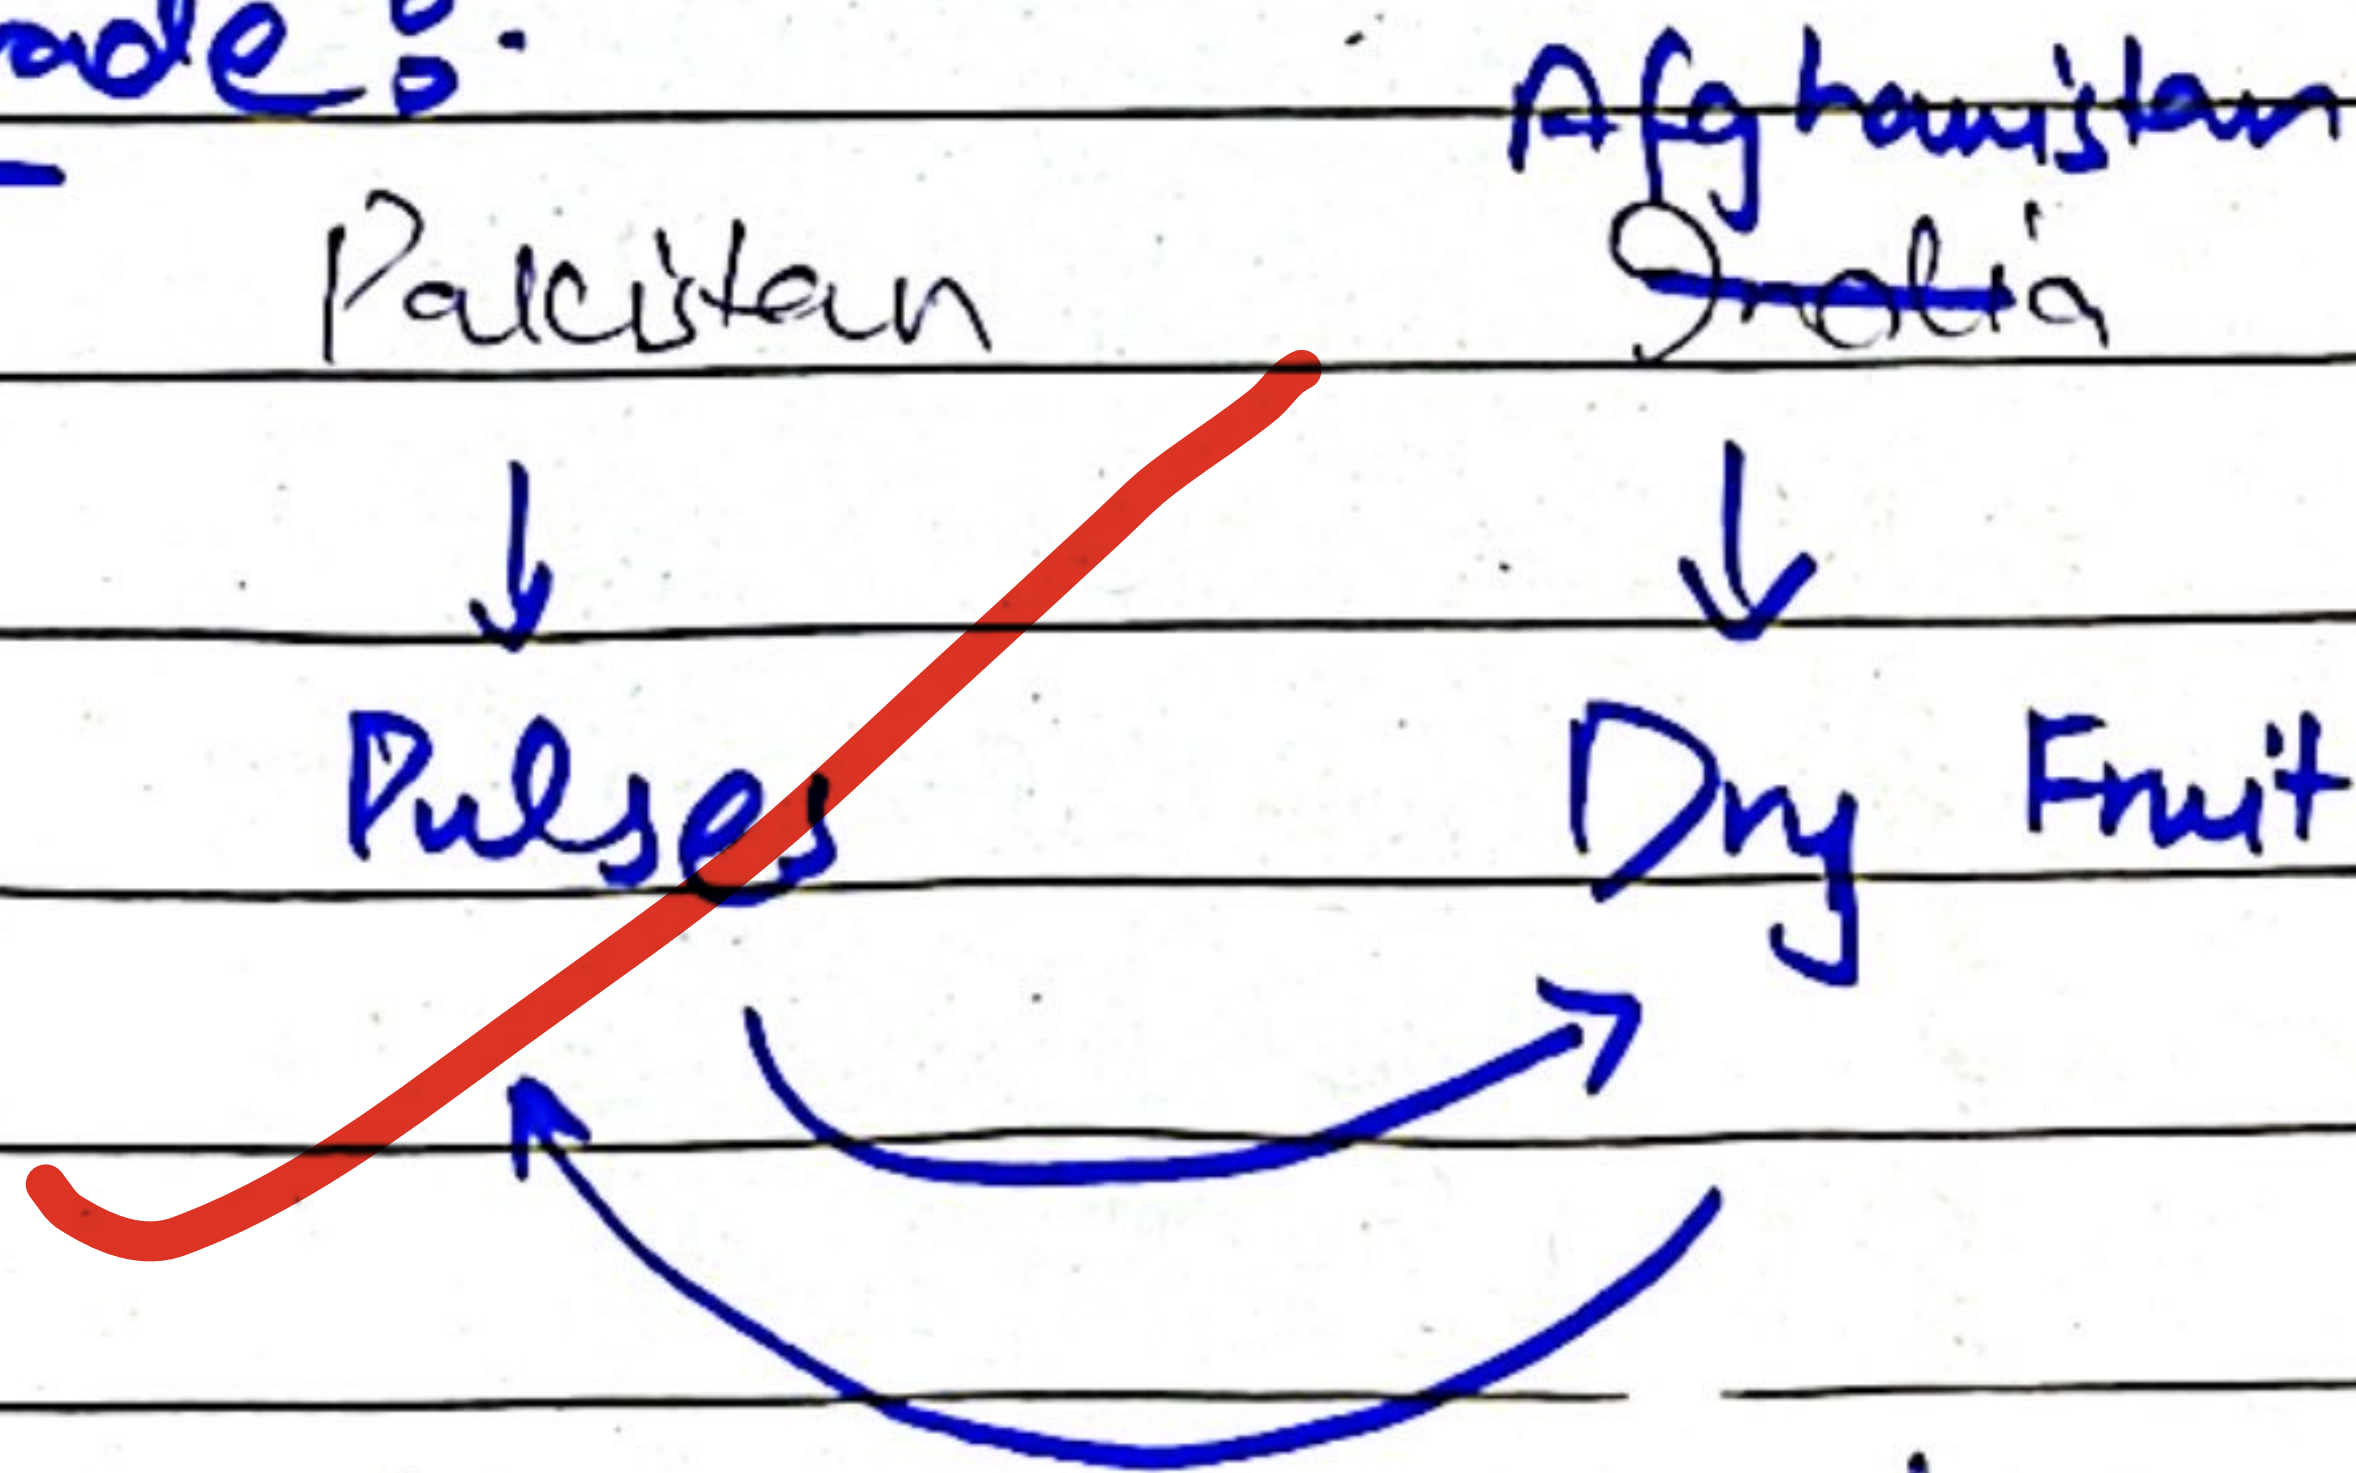 ade:
Afghanistan
Pakistan India
Pulses Dry Fruit